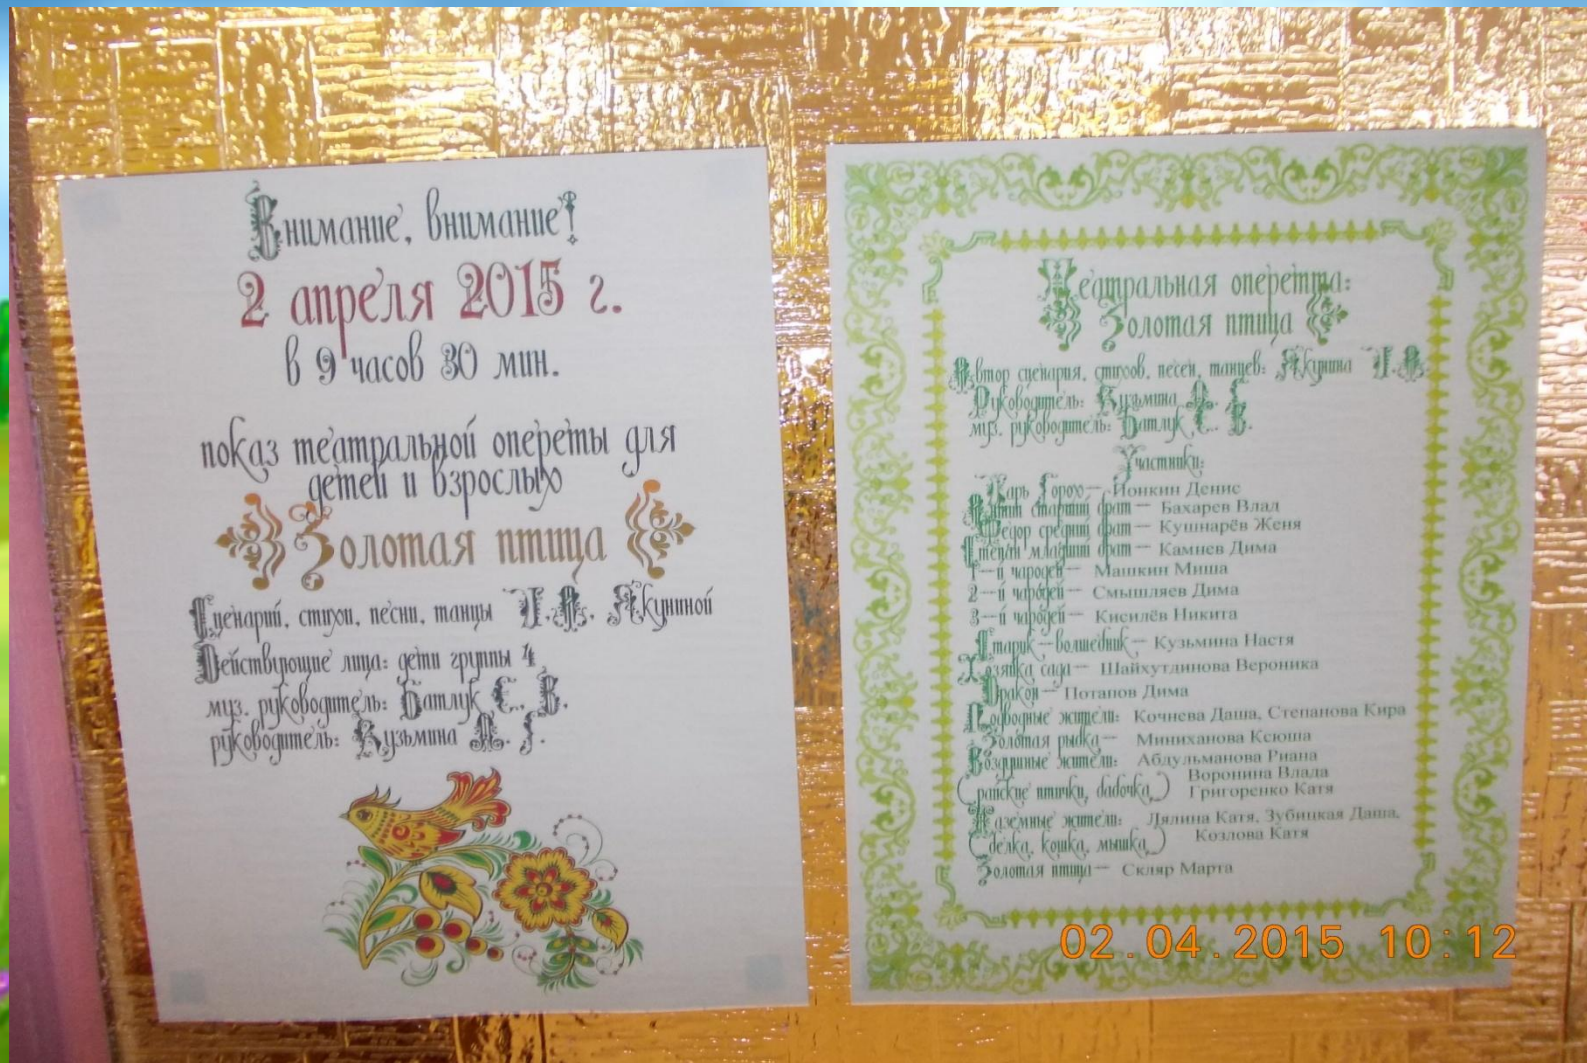 Внимание, внимание!
2 апреля 2015 г.
в 9 часов 30 мин.
показ театральной опереты для
детей и взрослых
Золотая птица
Сценарий, стихи, песни, танцы Т.А. Якуниной
Действующие лица: дети группы 4
муз. руководитель: Батлук С. В.
руководитель: Кузьмина А. Г.
Театральная оперетта:
Золотая птица
Автор сценария, стихов, песен, танцев: Якунина Т.А.
Руководитель: Кузьмина А. Г.
муз. руководитель: Батлук С. В.
Участники:
Царь Горох — Йонкин Денис
старший брат — Бахарев Влад
Фёдор средний брат — Кушнарёв Женя
Степан младший брат — Камнев Дима
1-й чародей — Машкин Миша
2-й чародей — Смышляев Дима
3-й чародей — Кисилёв Никита
Старик-волшебник — Кузьмина Настя
Хозяйка сада — Шайхутдинова Вероника
Дракон — Потапов Дима
Подводные жители: Кочнева Даша, Степанова Кира
Золотая рыбка — Миниханова Ксюша
Воздушные жители: Абдульманова Риана
Воронина Влада
(райские птички, бабочка) Григоренко Катя
Наземные жители: Лялина Катя, Зубицкая Даша,
(белка, кошка, мышка) Козлова Катя
Золотая птица — Скляр Марта
02.04.2015 10:12